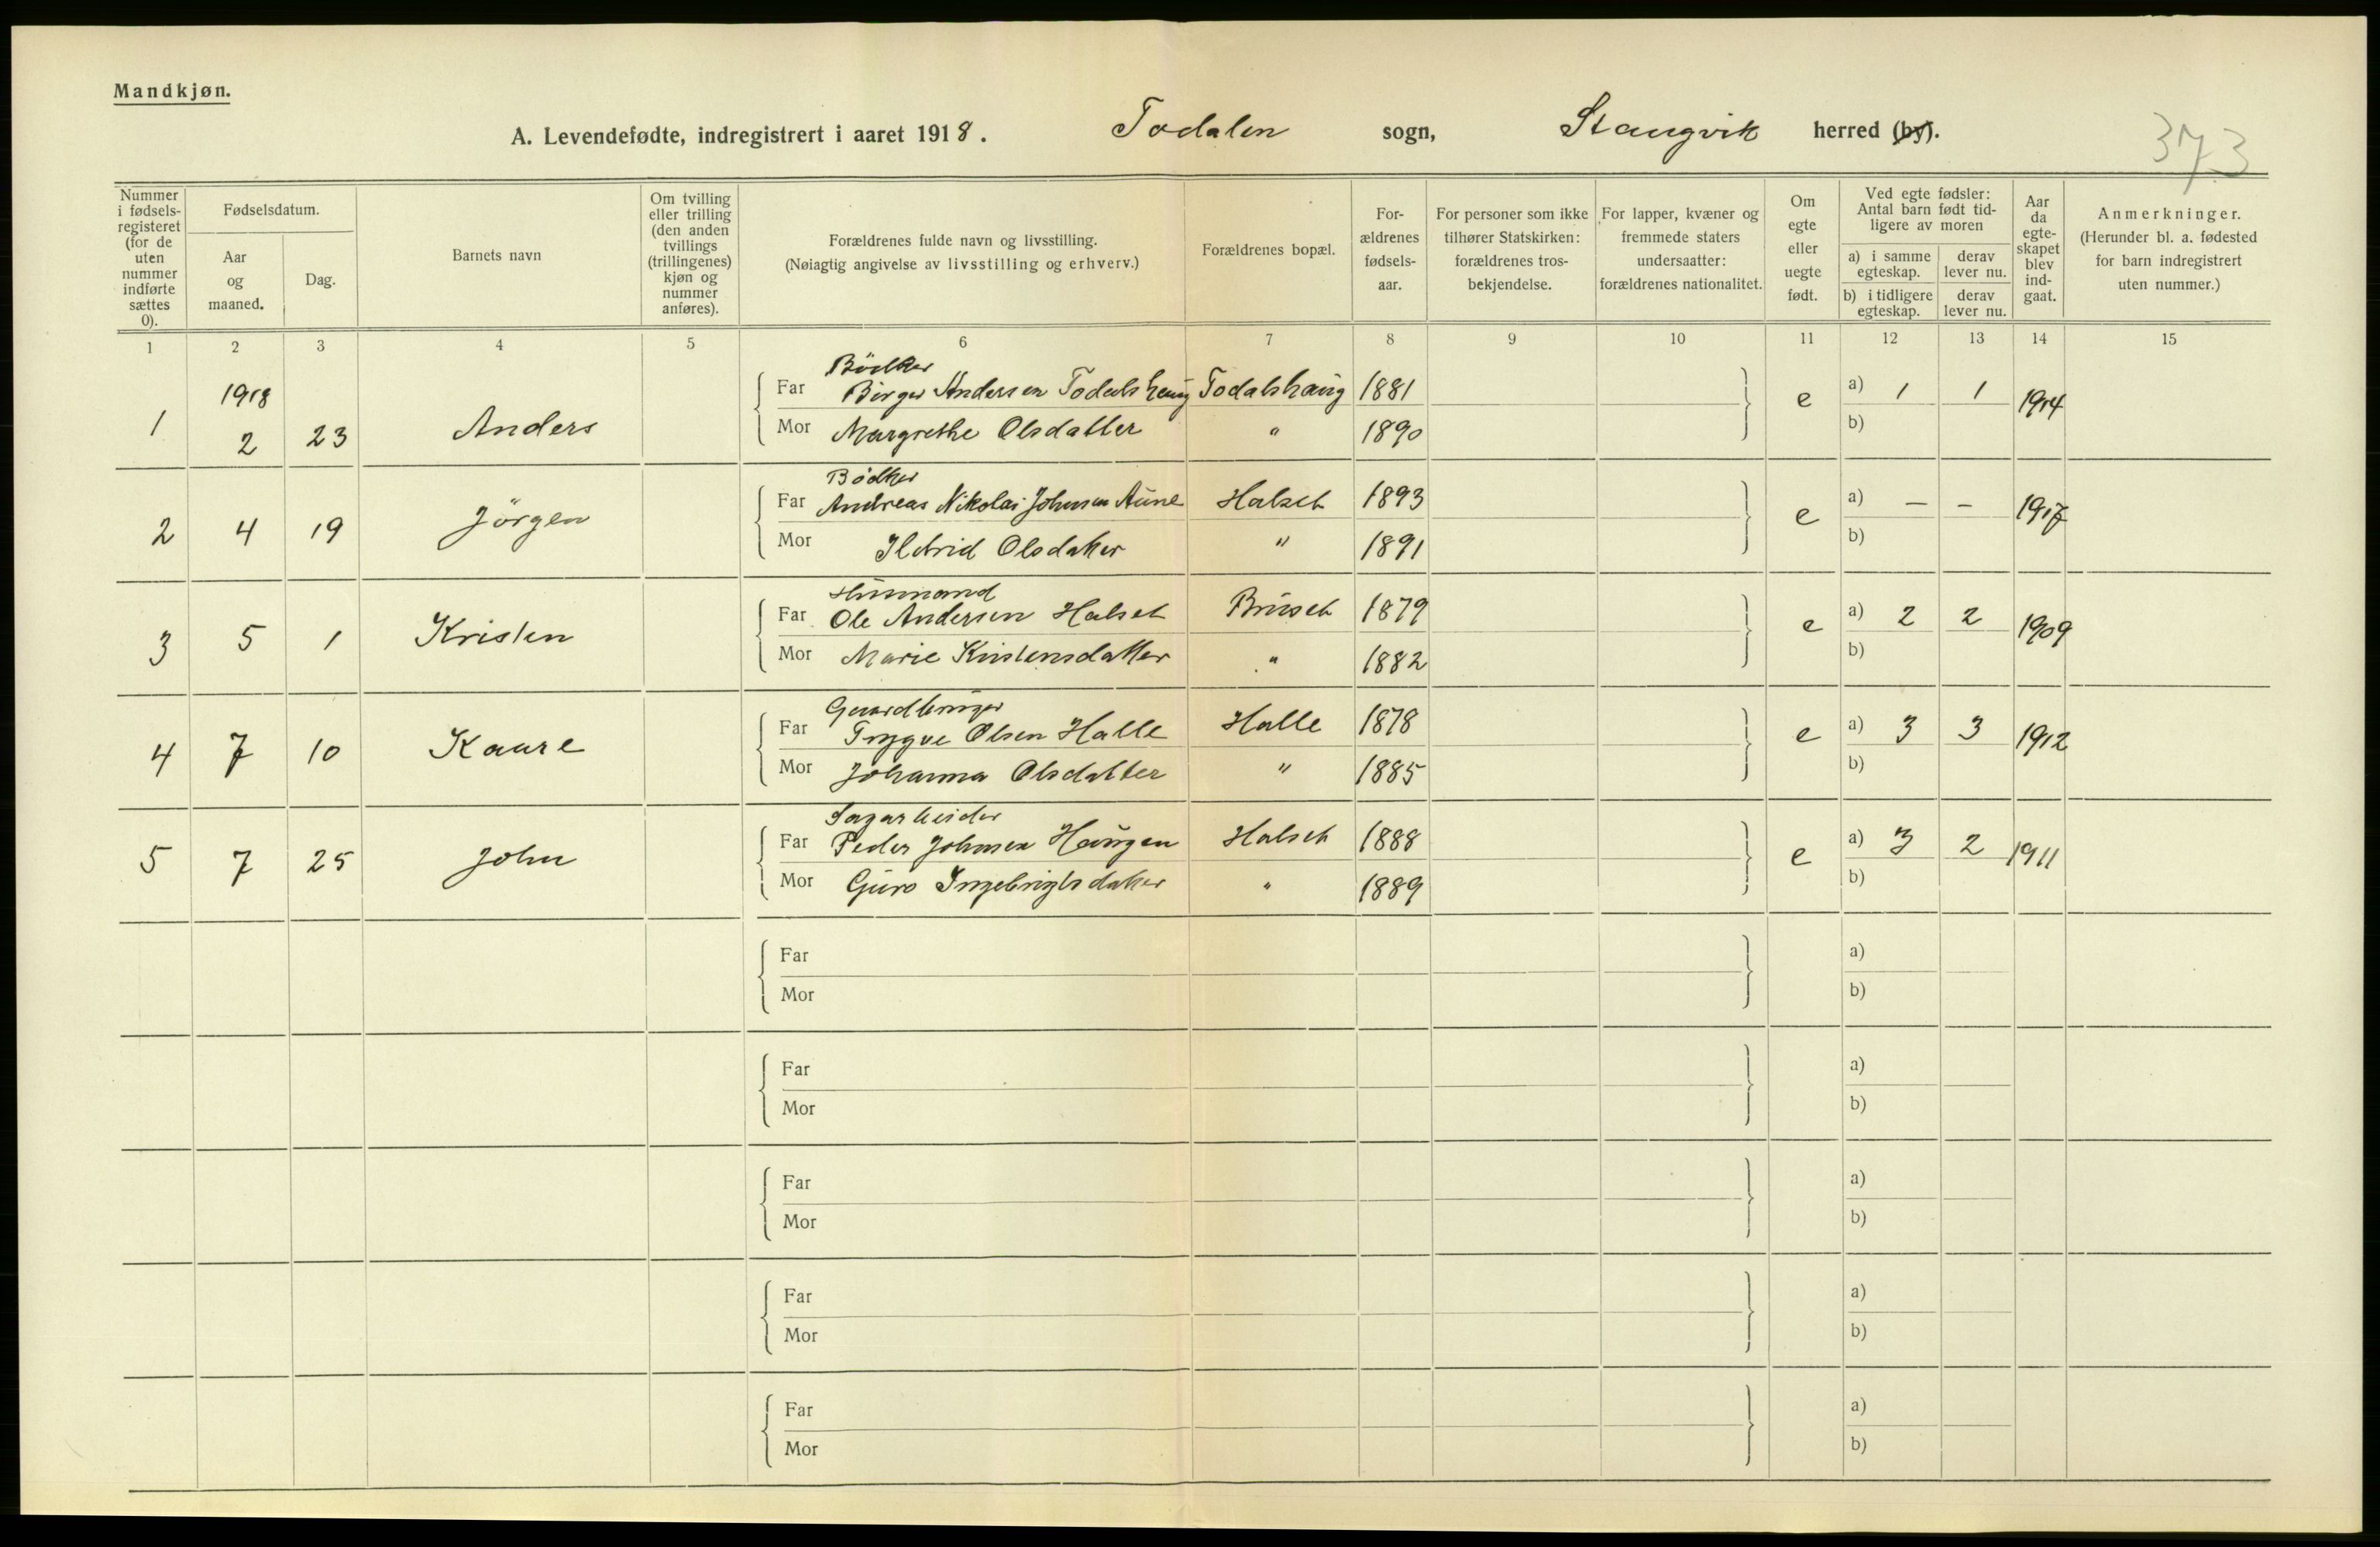 Mandkjøn.
A. Levendefødte, indregistrert i aaret 1918. Todalen sogn, Stangvik herred (by).
373
Nummer i fødsels-registeret (for de uten nummer indførte sættes 0).
Fødselsdatum.
Aar og maaned.
Dag.
Barnets navn
Om tvilling eller trilling (den anden tvillings (trillingenes) kjøn og nummer anføres).
Forældrenes fulde navn og livsstilling.
(Nøiagtig angivelse av livsstilling og erhverv.)
Forældrenes bopæl.
For-ældrenes fødsels-aar.
For personer som ikke tilhører Statskirken: forældrenes tros-bekjendelse.
For lapper, kvæner og fremmede staters undersaatter: forældrenes nationalitet.
Om egte eller uegte født.
Ved egte fødsler: Antal barn født tid-ligere av moren
a) i samme egteskap.
derav lever nu.
b) i tidligere egteskap.
derav lever nu.
Aar da egte-skapet blev ind-gaat.
Anmerkninger.
(Herunder bl. a. fødested for barn indregistrert uten nummer.)
1 2 3 4 5 6 7 8 9 10 11 12 13 14 15
Bödker
1 1918 2 23 Anders Far Birger Andersen Todalshaug Todalshaug 1881 e a) 1 1 1914
Mor Margrethe Olsdatter " 1890 b)
Bödker
2 4 19 Jörgen Far Andreas Nikolai Johnsen Aune Halset 1893 e a) — – 1917
Mor Ildrid Olsdatter " 1891 b)
Husmand
3 5 1 Kristen Far Ole Andersen Halset Bruset 1879 e a) 2 2 1909
Mor Marie Kristensdatter " 1882 b)
Gaardbruger
4 7 10 Kaare Far Trygve Olsen Halle Halle 1878 e a) 3 3 1912
Mor Johanna Olsdatter " 1885 b)
Sagarbeider
5 7 25 John Far Peder Johnsen Haugen Halset 1888 e a) 3 2 1911
Mor Guro Ingebrigtsdatter " 1889 b)
Far a)
Mor b)
Far a)
Mor b)
Far a)
Mor b)
Far a)
Mor b)
Far a)
Mor b)